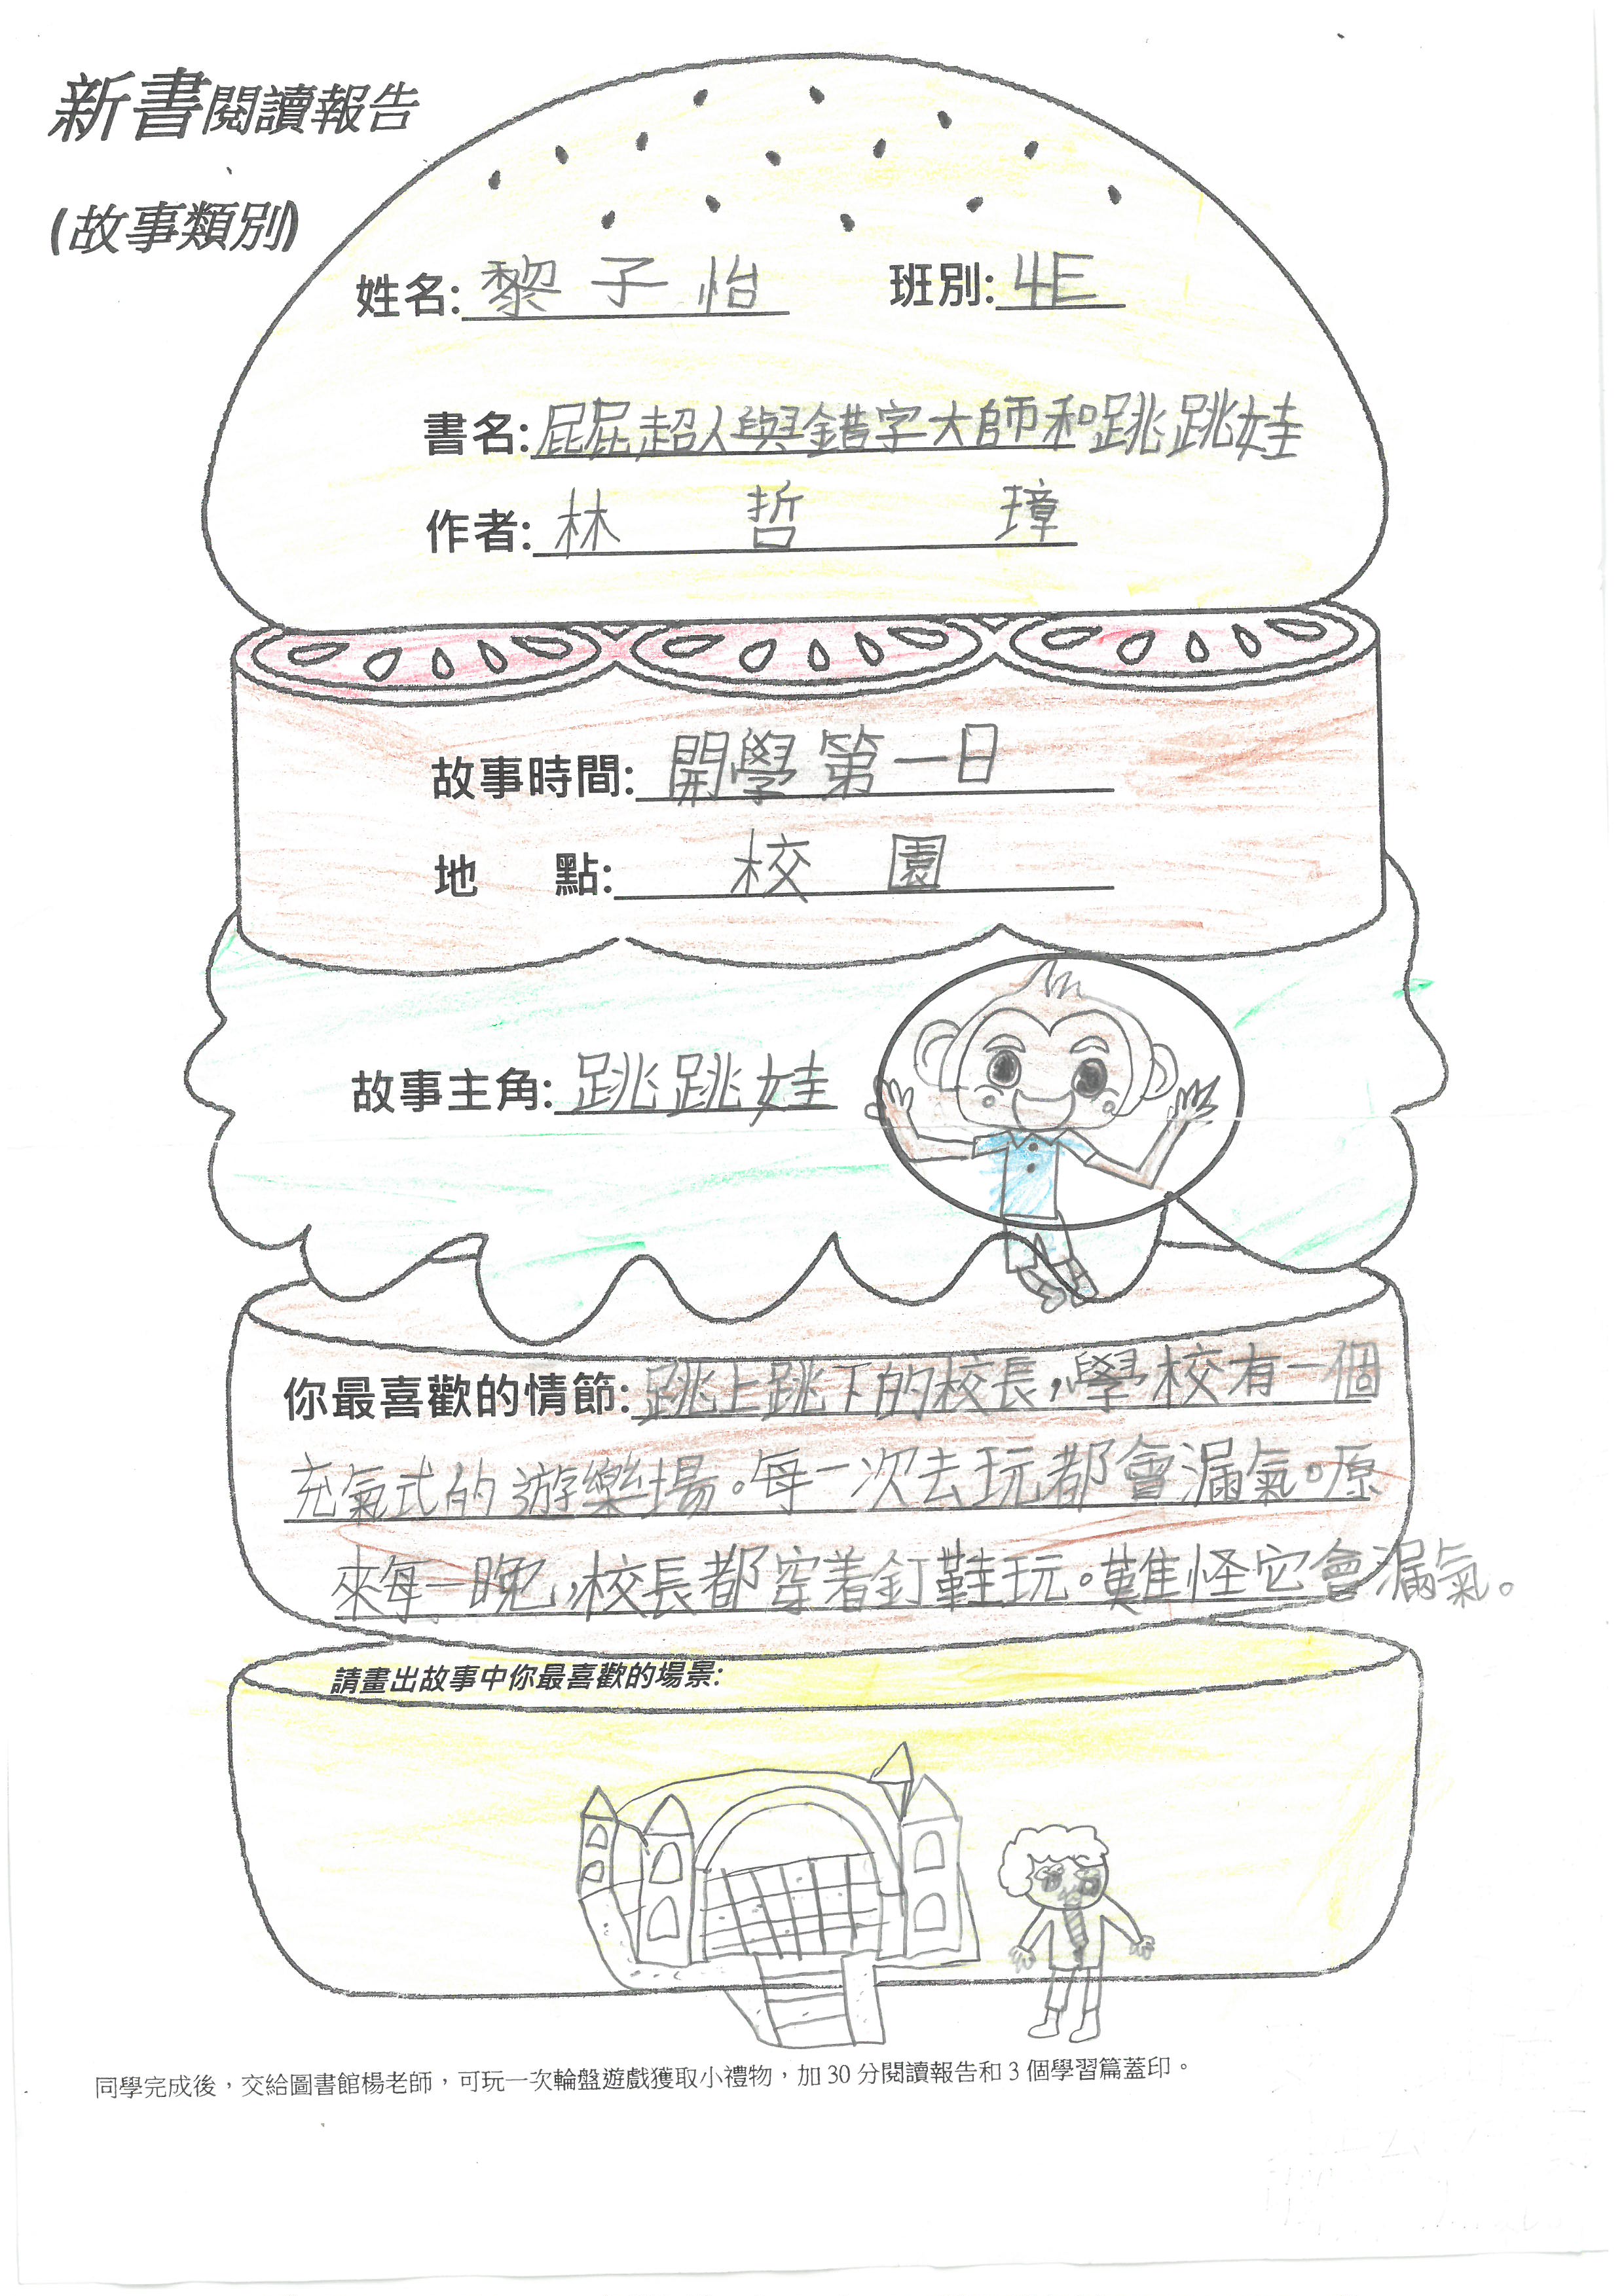 新書閱讀報告
(故事類別)
姓名: 黎子怡 班別: 4E
書名: 屁屁超人與錯字大師和跳跳娃
作者: 林哲璋
故事時間: 開學第一日
地點: 校園
故事主角: 跳跳娃
你最喜歡的情節: 跳上跳下的校長,學校有一個
充氣式的遊樂場。每一次去玩都會漏氣。原
來每一晚,校長都穿着釘鞋玩。難怪它會漏氣。
請畫出故事中你最喜歡的場景:
同學完成後，交給圖書館楊老師，可玩一次輪盤遊戲獲取小禮物，加 30 分閱讀報告和 3 個學習篇蓋印。